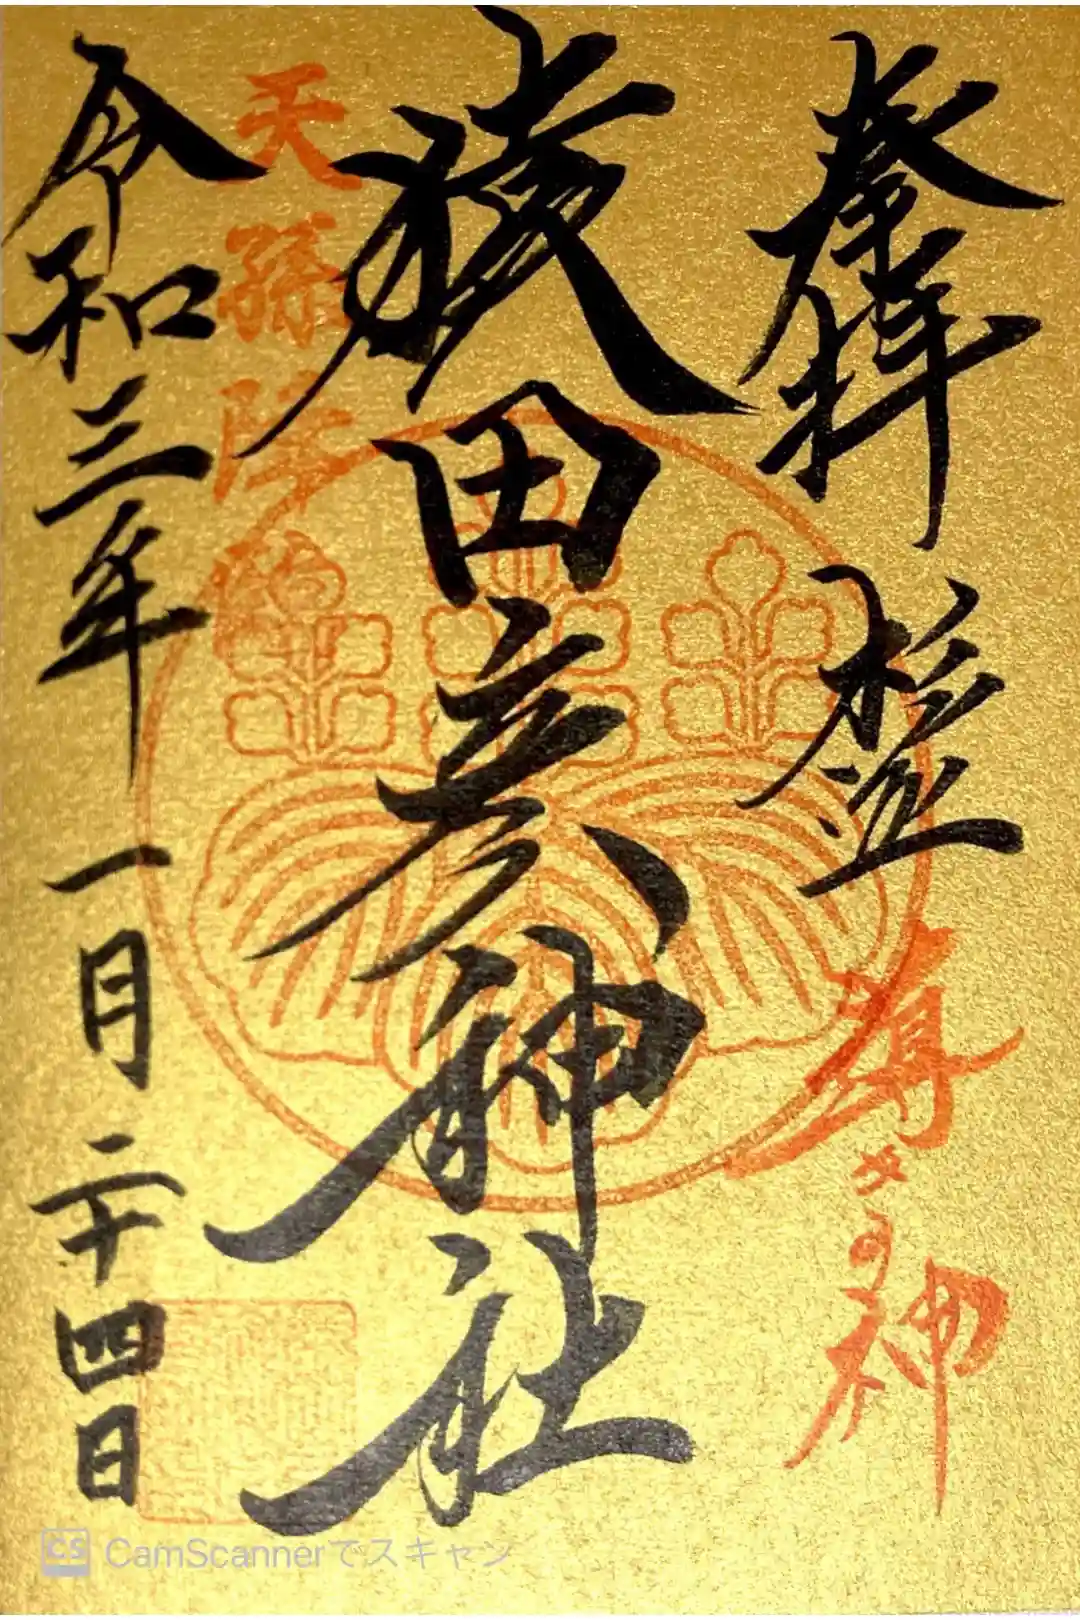 奉拝
導きの神
猿田彦神社
天孫降臨
令和三年一月二十四日
CS CamScannerでスキャン